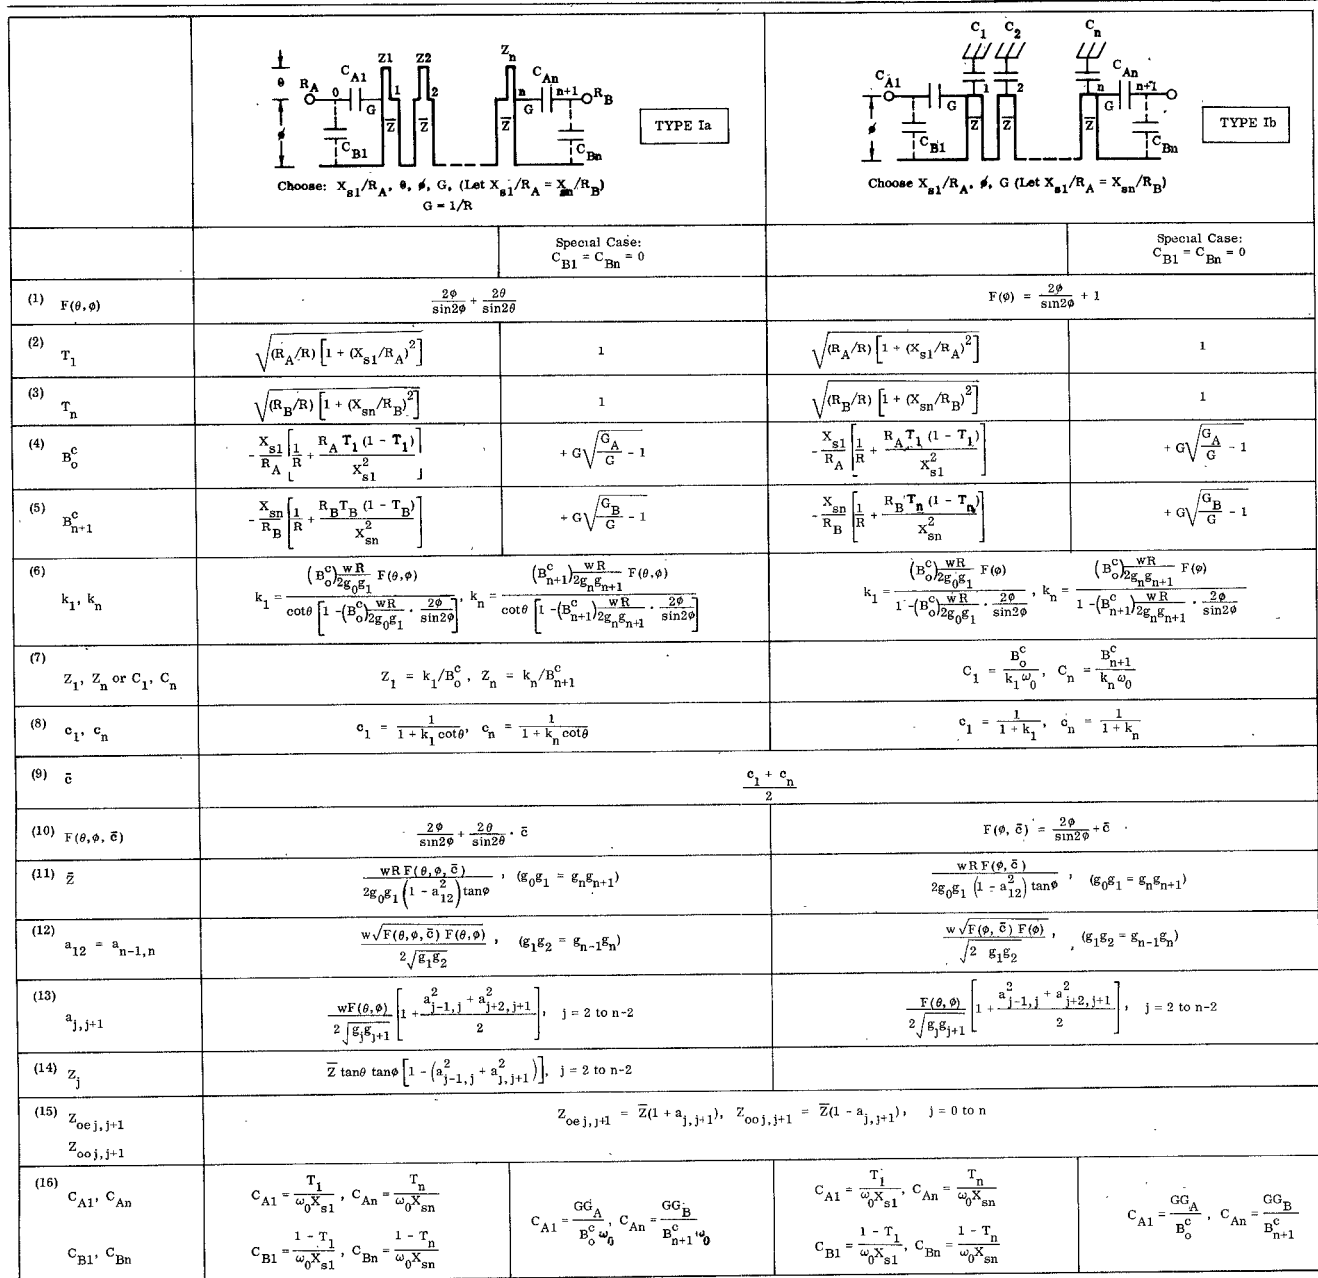 C_A1 Z1 Z2 Z_n C_An
θ R_A 0 1 2 n n+1 R_B
G G
φ Z̄ Z̄ Z̄
C_B1 C_Bn
TYPE Ia
Choose: X_s1/R_A, θ, φ, G, (Let X_s1/R_A = X_sn/R_B)
G = 1/R
C_1 C_2 C_n
C_A1 C_An
G 1 2 n G n+1
φ Z̄ Z̄ Z̄
C_B1 C_Bn
TYPE Ib
Choose X_s1/R_A, φ, G (Let X_s1/R_A = X_sn/R_B)
Special Case:
C_B1 = C_Bn = 0
Special Case:
C_B1 = C_Bn = 0
(1) F(θ,φ)
2φ/sin2φ + 2θ/sin2θ
F(φ) = 2φ/sin2φ + 1
(2) T_1
√((R_A/R) [1 + (X_s1/R_A)^2])
1
√((R_A/R) [1 + (X_s1/R_A)^2])
1
(3) T_n
√((R_B/R) [1 + (X_sn/R_B)^2])
1
√((R_B/R) [1 + (X_sn/R_B)^2])
1
(4) B_o^c
-X_s1/R_A [1/R + R_A T_1 (1 - T_1)/X_s1^2]
+ G√(G_A/G - 1)
-X_s1/R_A [1/R + R_A T_1 (1 - T_1)/X_s1^2]
+ G√(G_A/G - 1)
(5) B_n+1^c
-X_sn/R_B [1/R + R_B T_B (1 - T_B)/X_sn^2]
+ G√(G_B/G - 1)
-X_sn/R_B [1/R + R_B T_n (1 - T_n)/X_sn^2]
+ G√(G_B/G - 1)
(6) k_1, k_n
k_1 = (B_o^c) wR/2g_0g_1 F(θ,φ) / cotθ [1 -(B_o^c) wR/2g_0g_1 · 2φ/sin2φ], k_n = (B_n+1^c) wR/2g_ng_n+1 F(θ,φ) / cotθ [1 -(B_n+1^c) wR/2g_ng_n+1 · 2φ/sin2φ]
k_1 = (B_o^c) wR/2g_0g_1 F(φ) / 1 -(B_o^c) wR/2g_0g_1 · 2φ/sin2φ, k_n = (B_o^c) wR/2g_ng_n+1 F(φ) / 1 -(B_n+1^c) wR/2g_ng_n+1 · 2φ/sin2φ
(7) Z_1, Z_n or C_1, C_n
Z_1 = k_1/B_o^c, Z_n = k_n/B_n+1^c
C_1 = B_o^c/k_1ω_0, C_n = B_n+1^c/k_nω_0
(8) c_1, c_n
c_1 = 1/(1 + k_1 cotθ), c_n = 1/(1 + k_n cotθ)
c_1 = 1/(1 + k_1), c_n = 1/(1 + k_n)
(9) c̄
(c_1 + c_n)/2
(10) F(θ,φ,c̄)
2φ/sin2φ + 2θ/sin2θ · c̄
F(φ,c̄) = 2φ/sin2φ + c̄
(11) Z̄
wR F(θ,φ,c̄) / 2g_0g_1 (1 - a_12^2) tanφ, (g_0g_1 = g_ng_n+1)
wR F(φ,c̄) / 2g_0g_1 (1 - a_12^2) tanφ, (g_0g_1 = g_ng_n+1)
(12) a_12 = a_n-1,n
w√(F(θ,φ,c̄) F(θ,φ)) / 2√(g_1g_2), (g_1g_2 = g_n-1g_n)
w√(F(φ,c̄) F(φ)) / √(2 g_1g_2), (g_1g_2 = g_n-1g_n)
(13) a_j,j+1
wF(θ,φ) / 2√(g_jg_j+1) [1 + (a_j-1,j^2 + a_j+2,j+1^2)/2], j = 2 to n-2
F(θ,φ) / 2√(g_jg_j+1) [1 + (a_j-1,j^2 + a_j+2,j+1^2)/2], j = 2 to n-2
(14) Z_j
Z̄ tanθ tanφ [1 - (a_j-1,j^2 + a_j,j+1^2)], j = 2 to n-2
(15) Z_oe j,j+1
Z_oo j,j+1
Z_oe j,j+1 = Z̄(1 + a_j,j+1), Z_oo j,j+1 = Z̄(1 - a_j,j+1), j = 0 to n
(16) C_A1, C_An
C_B1, C_Bn
C_A1 = T_1/ω_0X_s1, C_An = T_n/ω_0X_sn
C_B1 = (1 - T_1)/ω_0X_s1, C_Bn = (1 - T_n)/ω_0X_sn
C_A1 = GG_A/B_o^c ω_0, C_An = GG_B/B_n+1^c ω_0
C_A1 = T_1/ω_0X_s1, C_An = T_n/ω_0X_sn
C_B1 = (1 - T_1)/ω_0X_s1, C_Bn = (1 - T_n)/ω_0X_sn
C_A1 = GG_A/B_o^c, C_An = GG_B/B_n+1^c